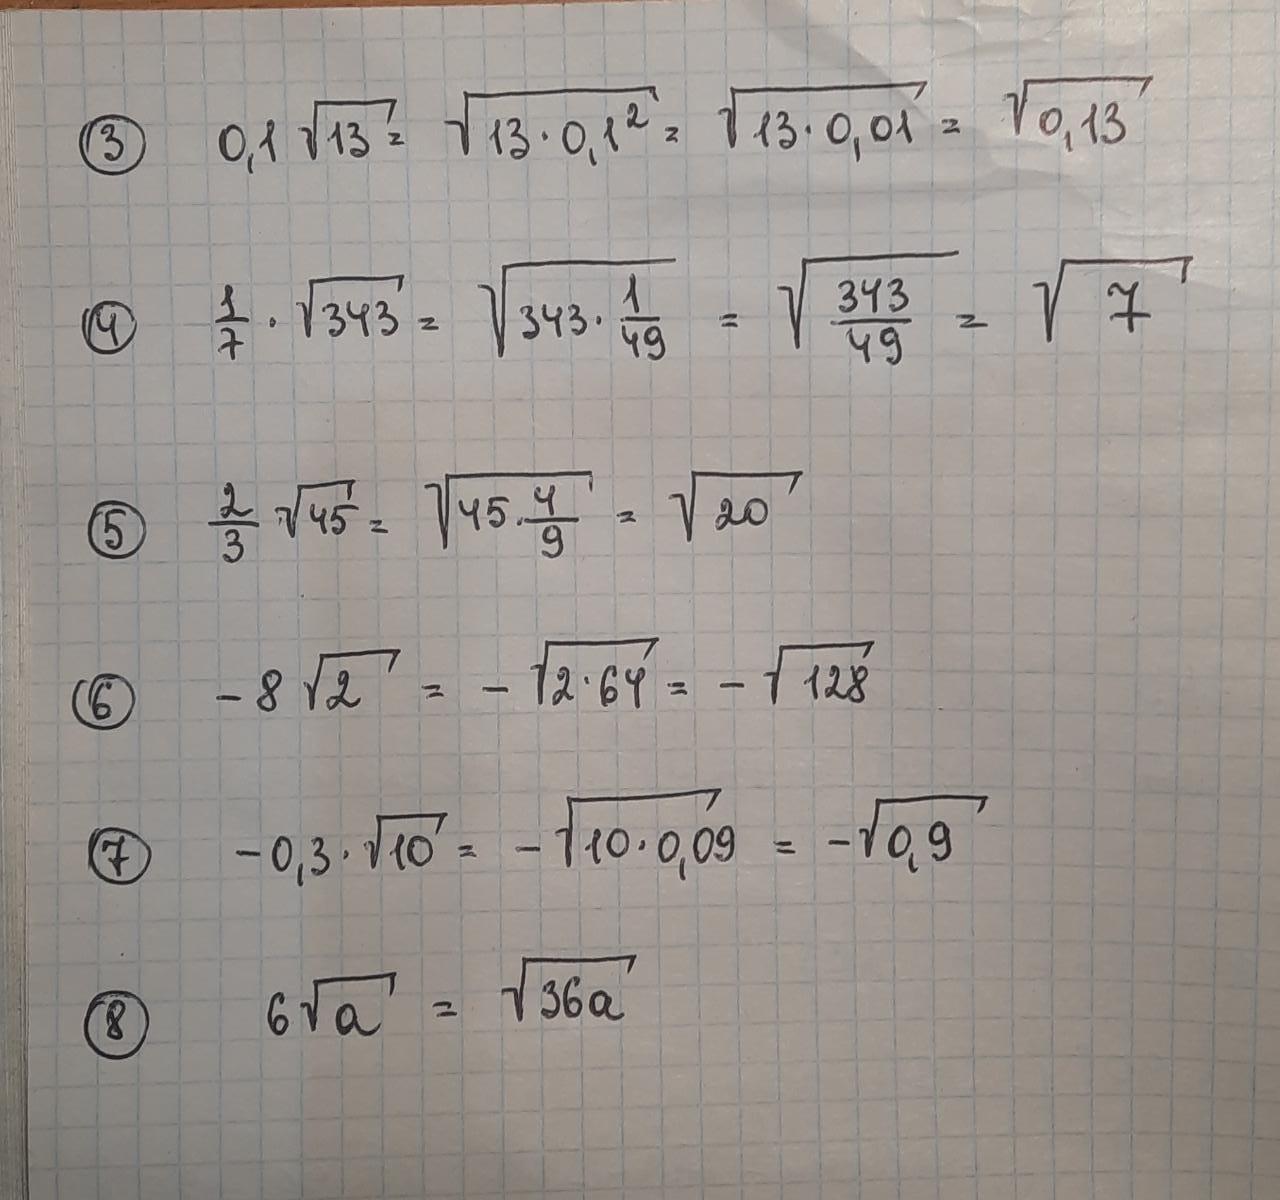 ③ 0,1 √13 = √(13 · 0,1²) = √(13 · 0,01) = √0,13
④ 1/7 · √343 = √(343 · 1/49) = √(343/49) = √7
⑤ 2/3 √45 = √(45 · 4/9) = √20
⑥ -8 √2 = -√(2 · 64) = -√128
⑦ -0,3 · √10 = -√(10 · 0,09) = -√0,9
⑧ 6√a = √36a